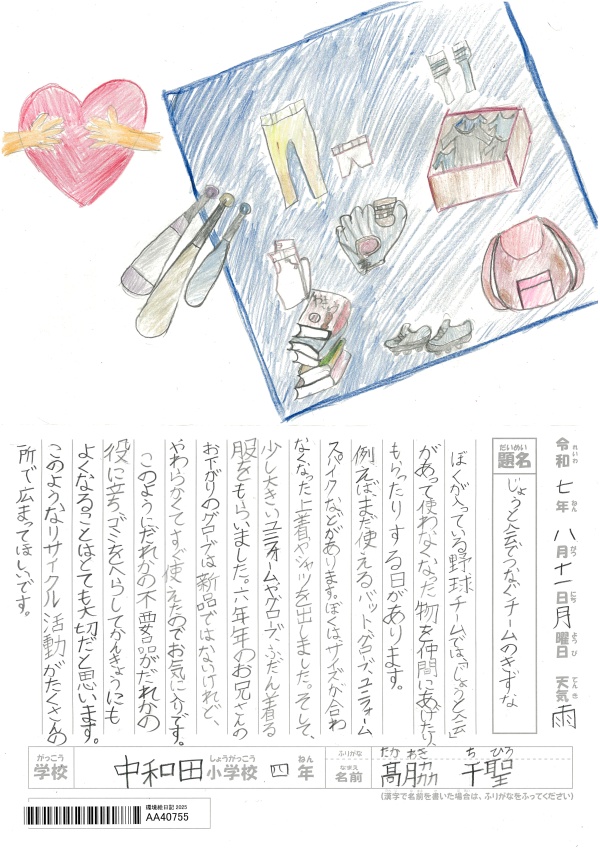 やきゅう
令和七年八月十一日月曜日 天気雨
れいわ ねん がつ にち ようび てんき
だいめい
題名 じょうと会でつなぐチームのきずな
ぼくが入っている野球チームでは、「じょうと会」
があって使わなくなった物を仲間にあげたり、
もらったりする日があります。
例えばまだ使えるバット、グローブ、ユニフォーム
スパイクなどがあります。ぼくはサイズが合わ
なくなった上着やシャツを出しました。そして、
少し大きいユニフォームやグローブ、ふだん着る
服をもらいました。六年年のお兄さんの
お下がりのグローブは新品ではないけれど、
やわらかくてすぐ使えたのでお気に入りです。
このようにだれかの不要品がだれかの
役に立ち、ゴミをへらしてかんきょうにも
よくなることはとても大切だと思います。
このようなリサイクル活動がたくさんの
所で広まってほしいです。
がっこう しょうがっこう ねん
学校 中和田小学校 四年
ふりがな たか わき ち ひろ
なまえ
名前 髙脇 千聖
(漢字で名前を書いた場合は、ふりがなをふってください)
環境絵日記 2025
AA40755